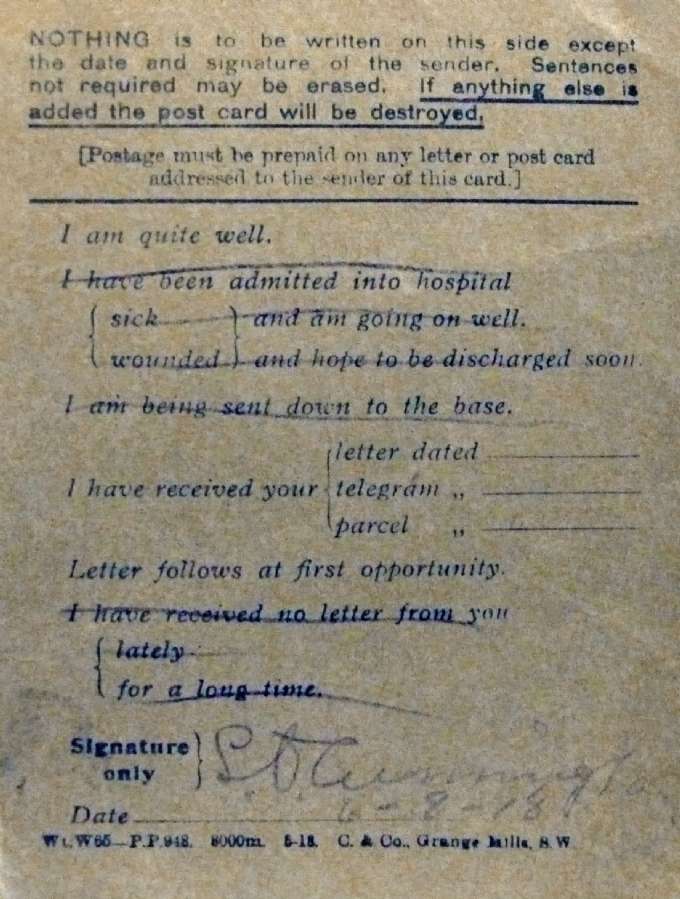 NOTHING is to be written on this side except
the date and signature of the sender. Sentences
not required may be erased. If anything else is
added the post card will be destroyed.
[Postage must be prepaid on any letter or post card
addressed to the sender of this card.]
I am quite well.
I have been admitted into hospital
sick and am going on well.
wounded and hope to be discharged soon.
I am being sent down to the base.
letter dated
I have received your telegram „
parcel „
Letter follows at first opportunity.
I have received no letter from you
lately
for a long time.
Signature
only
Date 6-8-18
Wt. W65—P.P.948. 8000m. 5-18. C. & Co., Grange Mills, S.W.